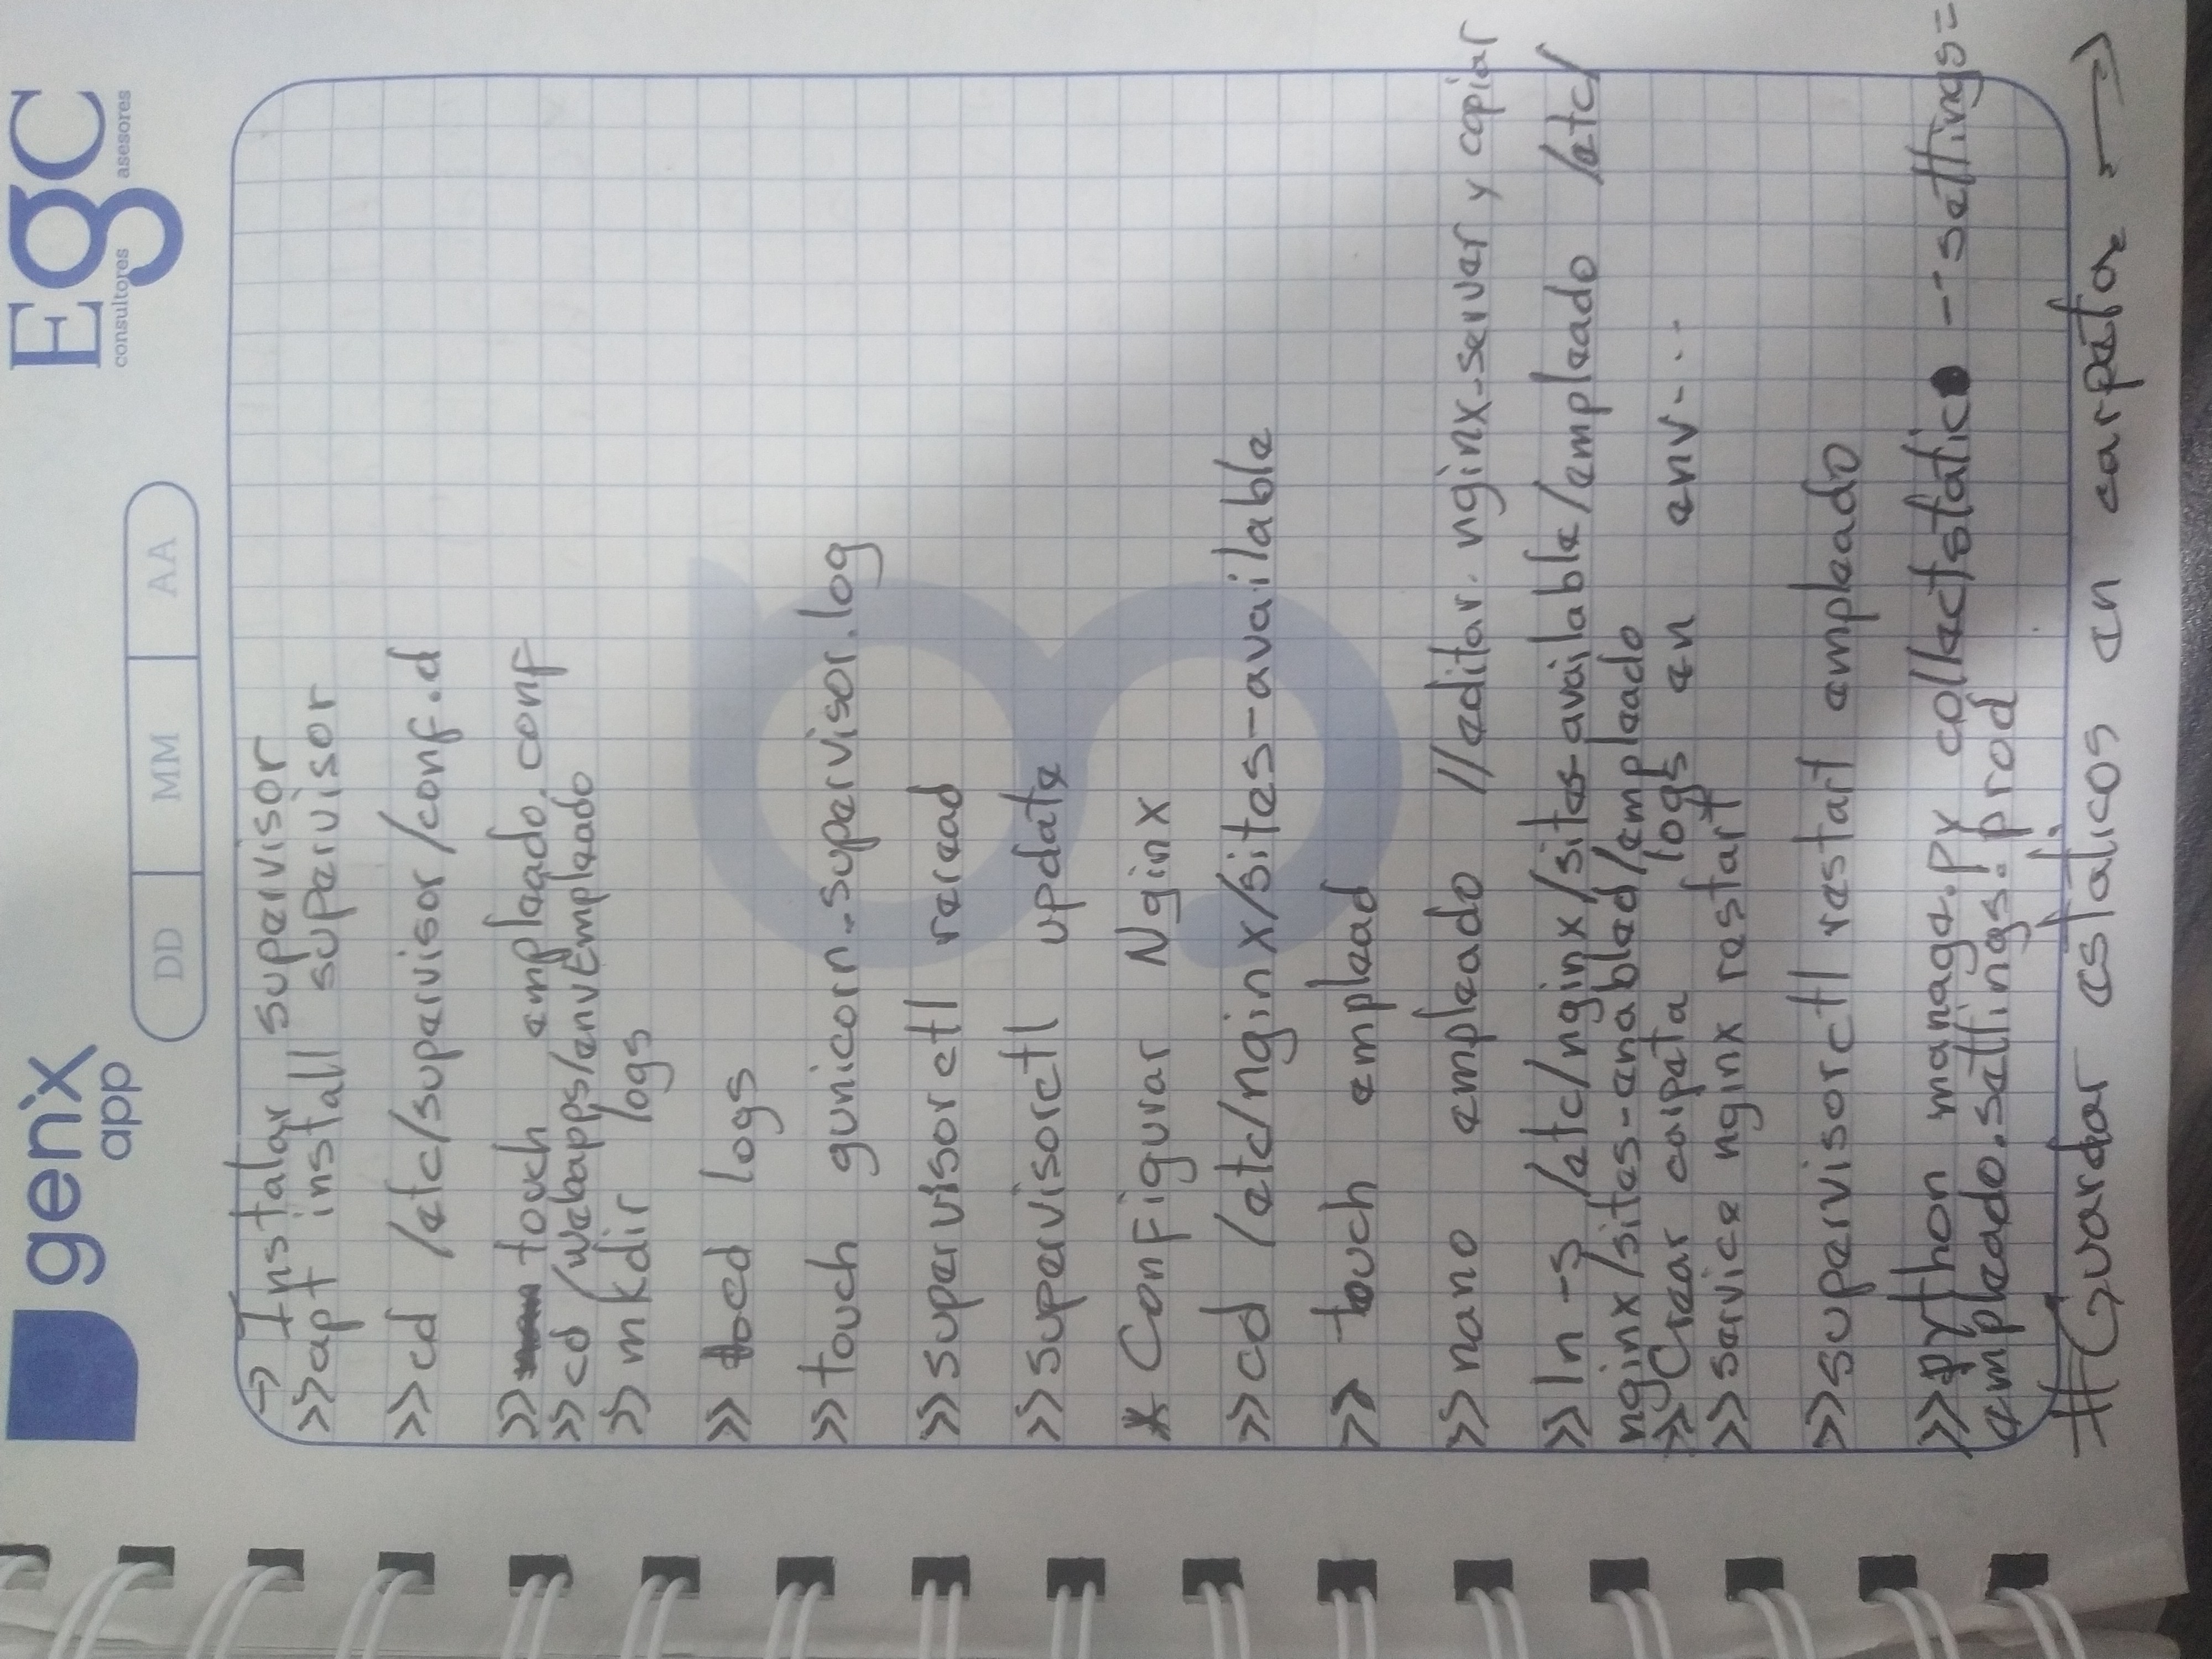 gen'x
app
EgC
consultores asesores
DD MM AA
→ Instalar supervisor
>>apt install supervisor
>>cd /etc/supervisor/conf.d
>> touch empleado.conf
>>cd /webapps/envEmpleado
>>mkdir logs
>> cd logs
>>touch gunicorn_supervisor.log
>>supervisorctl reread
>>supervisorctl update
* Configurar Nginx
>>cd /etc/nginx/sites-available
>> touch emplead
>>nano empleado //editar nginx_server y copiar
>>ln -s /etc/nginx/sites-available/empleado /etc/
nginx/sites-enabled/empleado
>> Crear carpeta logs en env...
>>service nginx restart
>>supervisorctl restart empleado
>>python manage.py collectstatic --settings=
empleado.settings.prod
#Guardar estáticos en carpeta →